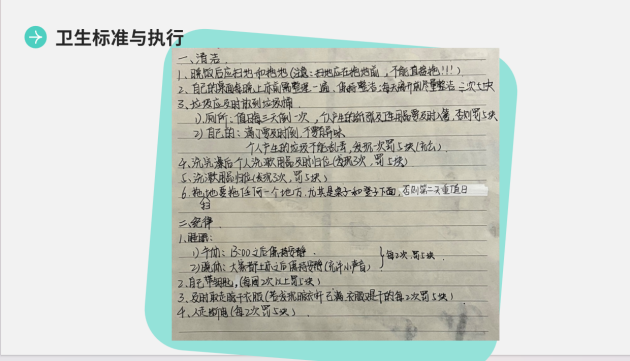 卫生标准与执行
一、清洁
1、晚饭后应扫地和拖地(注意:扫地应在拖地前,不能直接拖!!!)
2、自己的桌面每晚上床前需整理一遍,保持整洁;每天离开前尽量整洁
3、垃圾应及时放到垃圾桶
1)厕所:值日每三天倒一次,个人产生的
否则罚5块
2)自己的:满了要及时倒,不要有异味
个人产生的垃圾不能乱丢,发现一次罚5块
4、洗完澡后个人洗漱用品及时归位(发现3次,罚5块)
5、洗漱用品归位(发现3次,罚5块)
6、拖地要拖任何一个地方,尤其是桌子和凳子下面,否则第二天重值日
扫
二、纪律
1、睡眠:
1)午休:13:00之后保持安静
2)晚休:大家都上床之后保持安静(允许小声音)
每2次罚5块
2、自己早起,(每周2次以上罚5块)
3、及时取走晾干衣服(若发现晾衣杆已满,衣服是干的每2次罚5块)
4、人走断电(每2次罚5块)